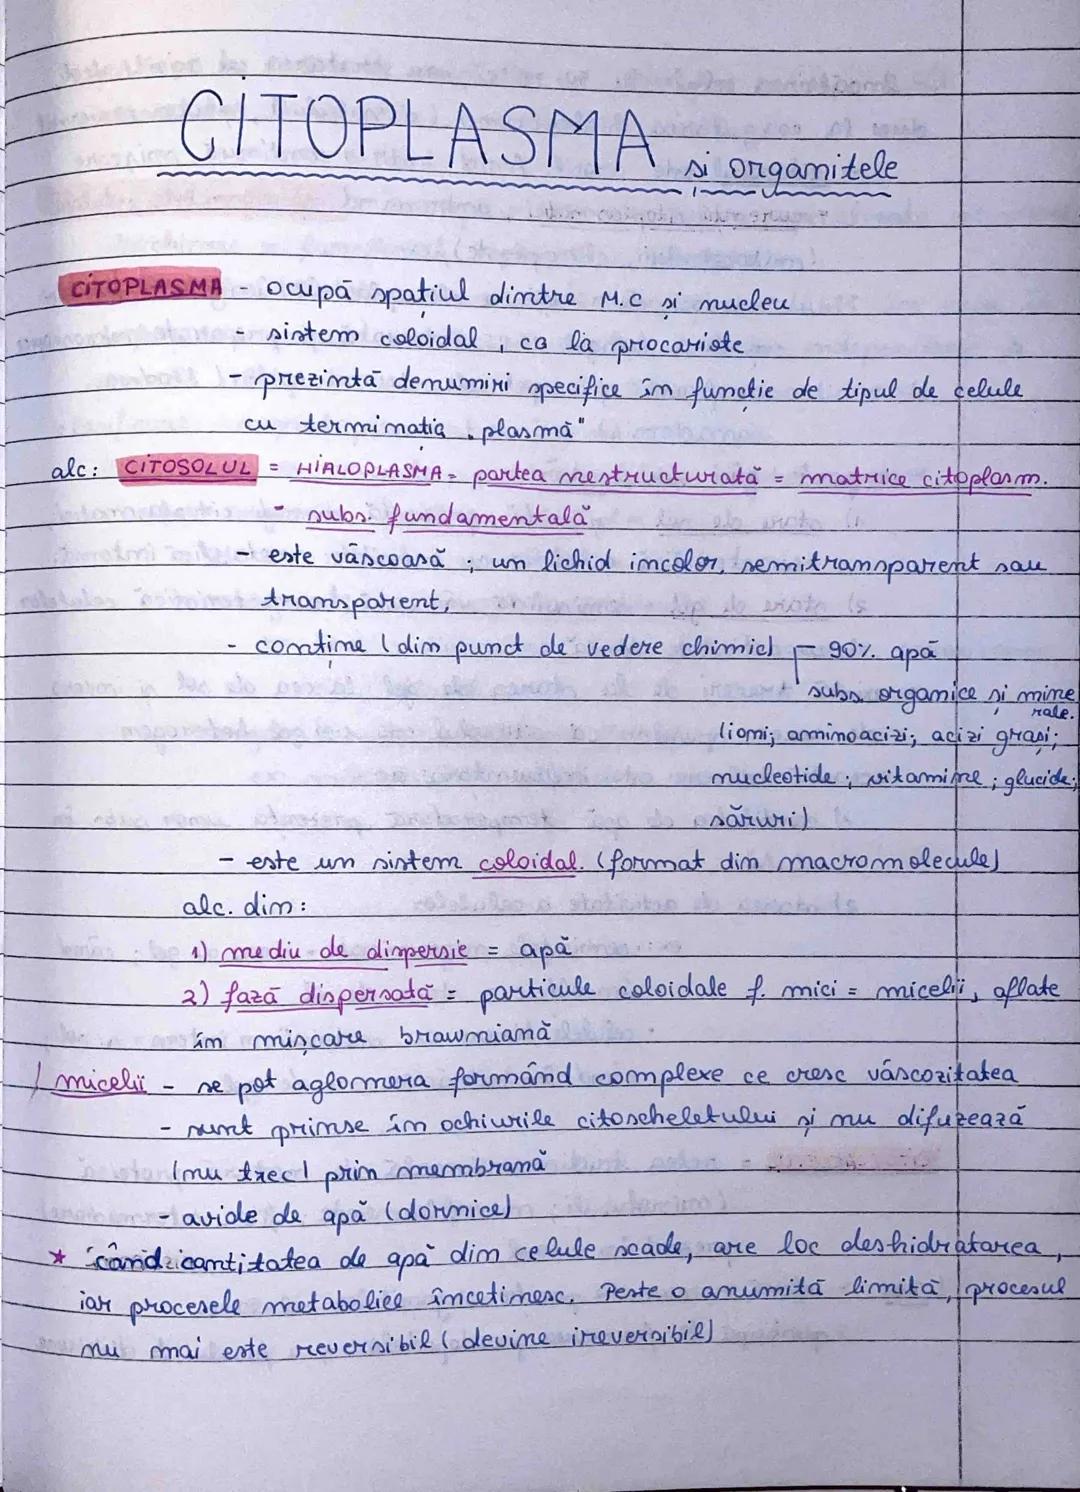 CITOPLASMA și organitele
CITOPLASMA - ocupă spațiul dintre M.C și nucleu
- sistem coloidal, ca la procariote
- prezintă denumiri specifice în funcție de tipul de celule
cu terminația „plasmă"
alc: CITOSOLUL = HIALOPLASMA - partea nestructurată = matrice citoplasm.
- subs. fundamentală
- este vâscoasă ; un lichid incolor, semitransparent sau
transparent,
- conține (din punct de vedere chimic) 90% apă
subs. organice și mine
rale.
(ioni; aminoacizi; acizi grași;
nucleotide ; vitamine ; glucide;
săruri)
- este un sistem coloidal. (format din macromolecule)
alc. din:
1) mediu de dispersie = apă
2) fază dispersată = particule coloidale f. mici = micelii, aflate
în mișcare brawniană
micelii - se pot aglomera formând complexe ce cresc vâscozitatea
- sunt prinse în ochiurile citoscheletului și nu difuzează
(nu trec) prin membrană
- avide de apă (dornice)
* când cantitatea de apă din celule scade, are loc deshidratarea,
iar procesele metabolice încetinesc. Peste o anumită limită, procesul
nu mai este reversibil (devine ireversibil)